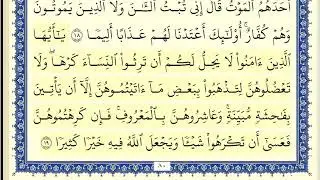 أَحَدَهُمُ ٱلۡمَوۡتُ قَالَ إِنِّي تُبۡتُ ٱلۡـَٰٔنَ وَلَا ٱلَّذِينَ يَمُوتُونَ
وَهُمۡ كُفَّارٌۚ أُوْلَـٰٓئِكَ أَعۡتَدۡنَا لَهُمۡ عَذَابًا أَلِيمٗا ١٨ يَـٰٓأَيُّهَا
ٱلَّذِينَ ءَامَنُواْ لَا يَحِلُّ لَكُمۡ أَن تَرِثُواْ ٱلنِّسَآءَ كَرۡهٗاۖ وَلَا
تَعۡضُلُوهُنَّ لِتَذۡهَبُواْ بِبَعۡضِ مَآ ءَاتَيۡتُمُوهُنَّ إِلَّآ أَن يَأۡتِينَ
بِفَـٰحِشَةٖ مُّبَيِّنَةٖۚ وَعَاشِرُوهُنَّ بِٱلۡمَعۡرُوفِۚ فَإِن كَرِهۡتُمُوهُنَّ
فَعَسَىٰٓ أَن تَكۡرَهُواْ شَيۡـٔٗا وَيَجۡعَلَ ٱللَّهُ فِيهِ خَيۡرٗا كَثِيرٗا ١٩
٨٠